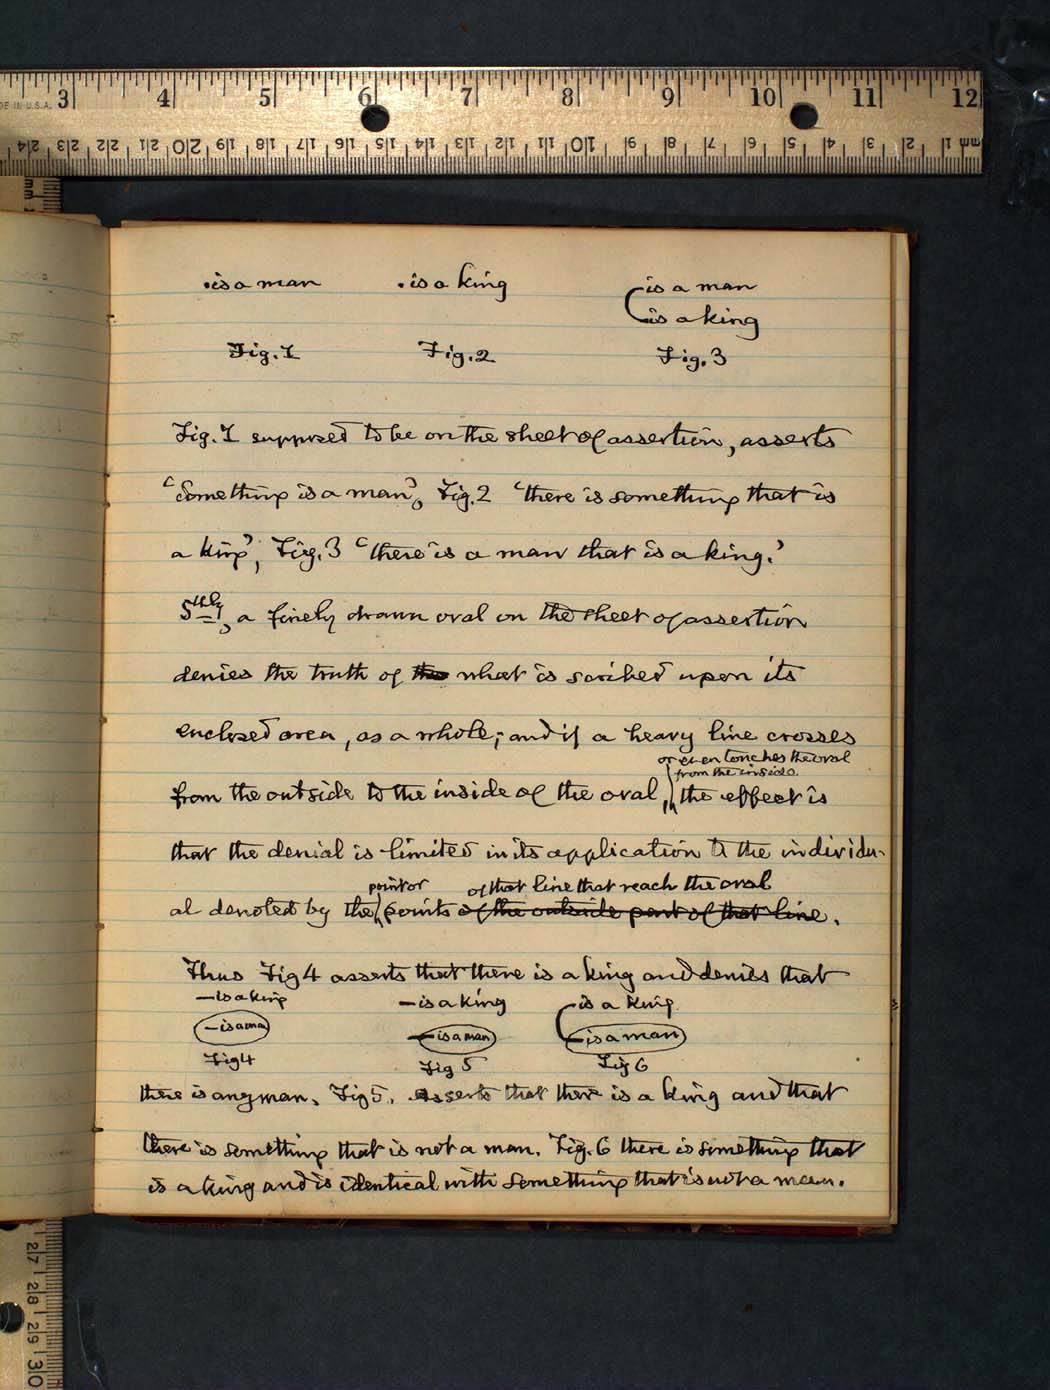 MADE IN U.S.A. 3 4 5 6 7 8 9 10 11 12
mm 1 2 3 4 5 6 7 8 9 10 11 12 13 14 15 16 17 18 19 20 21 22 23 24
mm
.is a man .is a king is a man
is a king
Fig. 1 Fig. 2 Fig. 3
Fig. 1 supposed to be on the sheet of assertion, asserts
'Something is a man', Fig. 2 'there is something that is
a king', Fig. 3 'there is a man that is a king.'
5thly, a finely drawn oval on the sheet of assertion
denies the truth of the what is scribed upon its
enclosed area, as a whole; and if a heavy line crosses
or even touches the oval
from the inside.
from the outside to the inside of the oval, the effect is
that the denial is limited in its application to the individu-
point or of that line that reach the oval
al denoted by the points of the outside part of that line.
Thus Fig 4 asserts that there is a king and denies that
—is a king —is a king is a king
—is a ma —is a man is a man
Fig 4 Fig 5 Fig 6
there is any man. Fig 5. Asserts that there is a king and that
there is something that is not a man. Fig. 6 there is something that
is a king and is identical with something that is not a man.
27 28 29 30